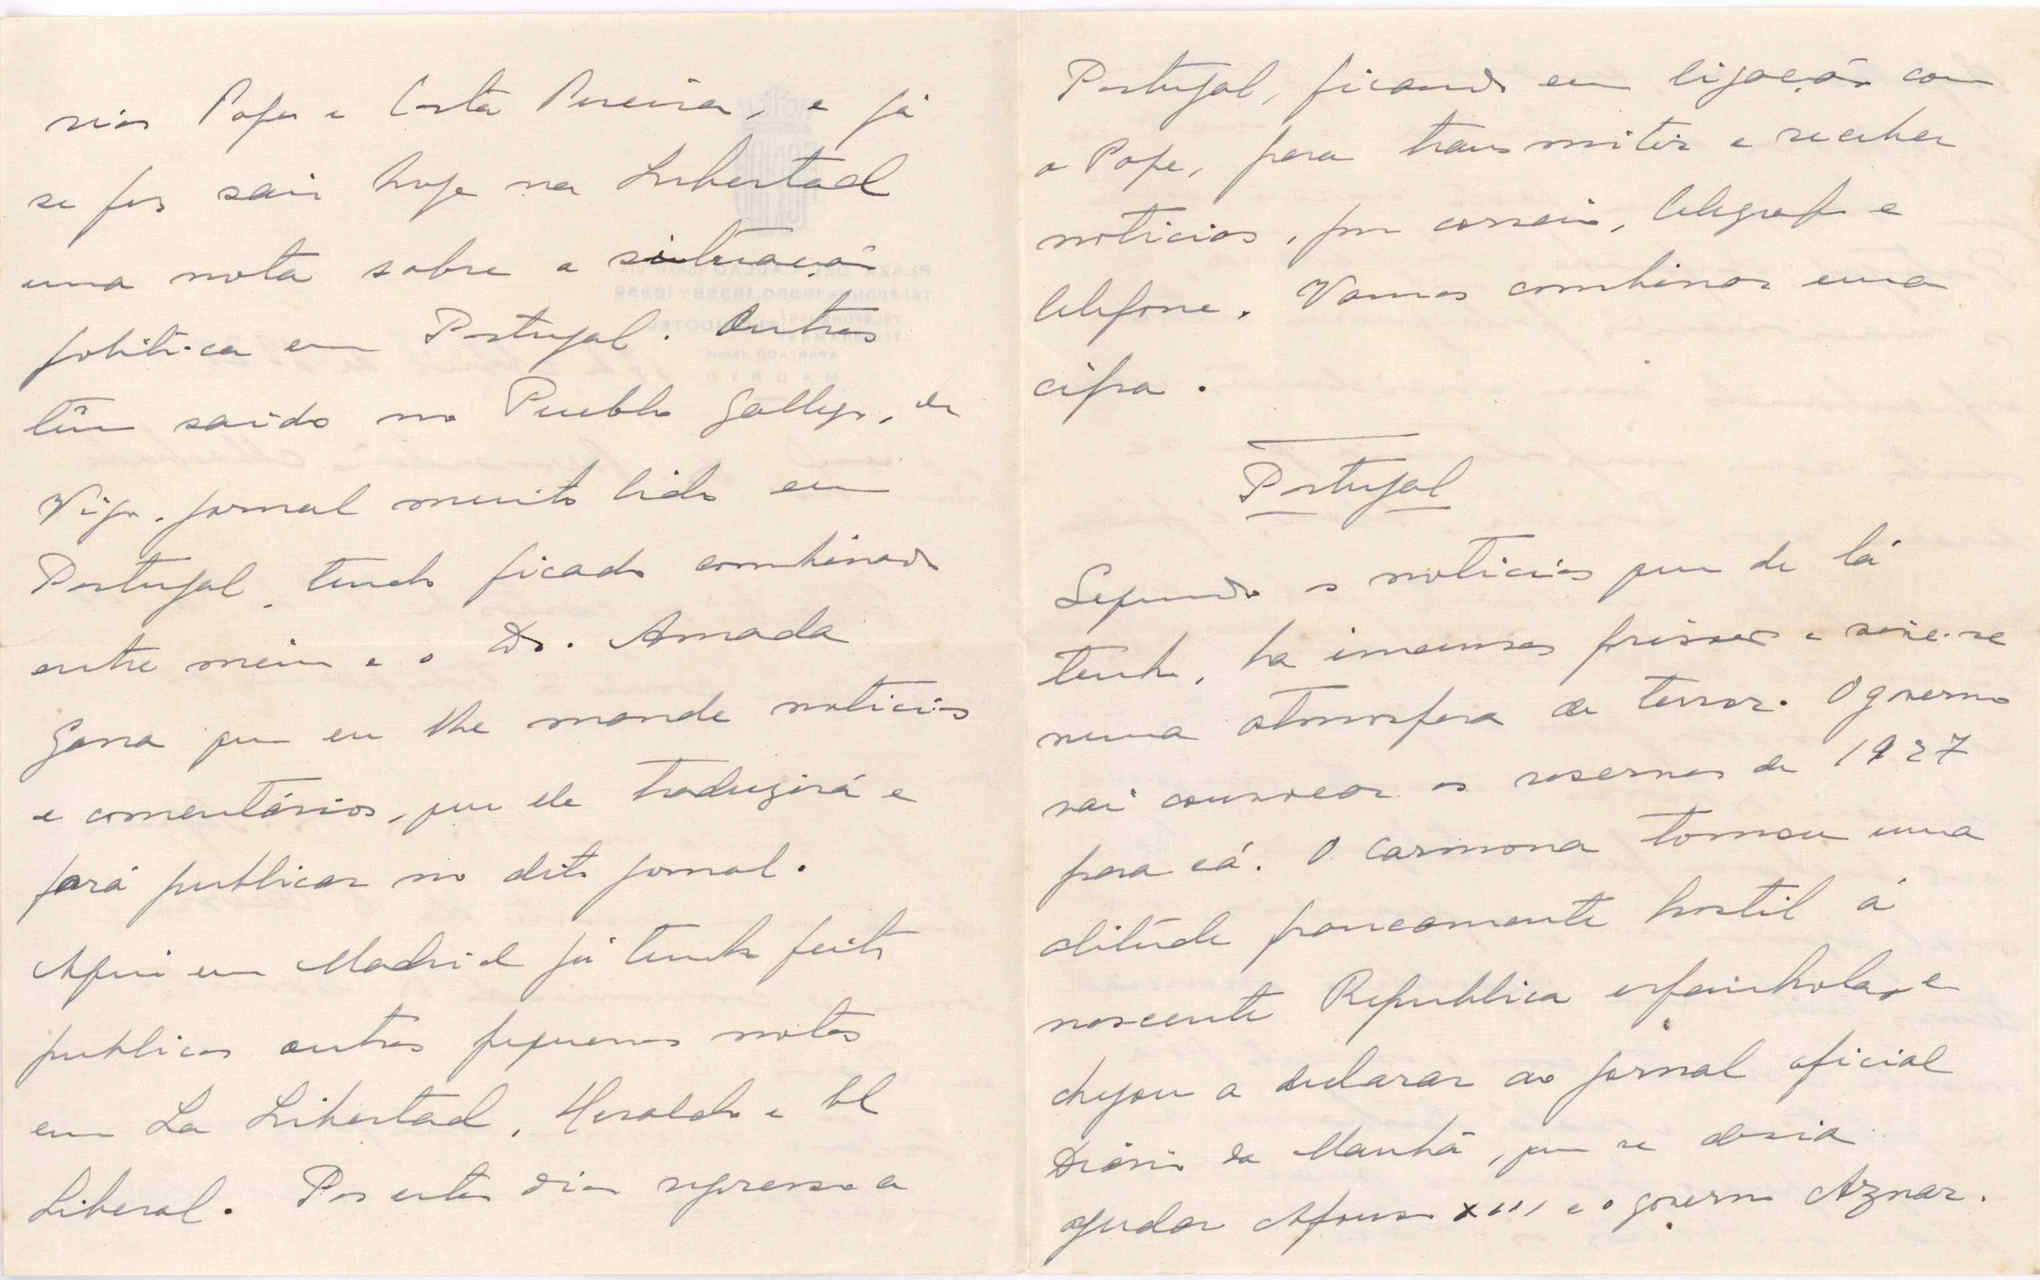 rios Pope e Costa Pereira, e já
se fez sair hoje na Libertad
uma nota sobre a situação
politica em Portugal. Outras
têm saido no Pueblo Gallego, de
Vigo, jornal muito lido em
Portugal, tendo ficado combinado
entre mim e o Dr. Amado
Garra que eu lhe mande noticias
e comentários, que ele traduzirá e
fará publicar no dito jornal.
Aqui em Madrid já tenho feito
publicar outras pequenas notas
em La Libertad, Heraldo e El
Liberal. Por estes dias regressa a
Portugal, ficando em ligação com
o Pope, para transmitir e receber
noticias, por correio, telegrafo e
telefone. Vamos combinar uma
cifra.
Portugal
Segundo as noticias que de lá
tenho, ha imensas prisões e vive-se
numa atmosfera de terror. O governo
vai convocar as reservas de 1927
para cá. O Carmona tomou uma
atitude francamente hostil á
nascente Republica espanhola, e
chegou a declarar ao jornal oficial
Diário da Manhã, que se devia
ajudar Afonso XIII e o governo Aznar.
PLAZA DEL CALLAO
MADRID